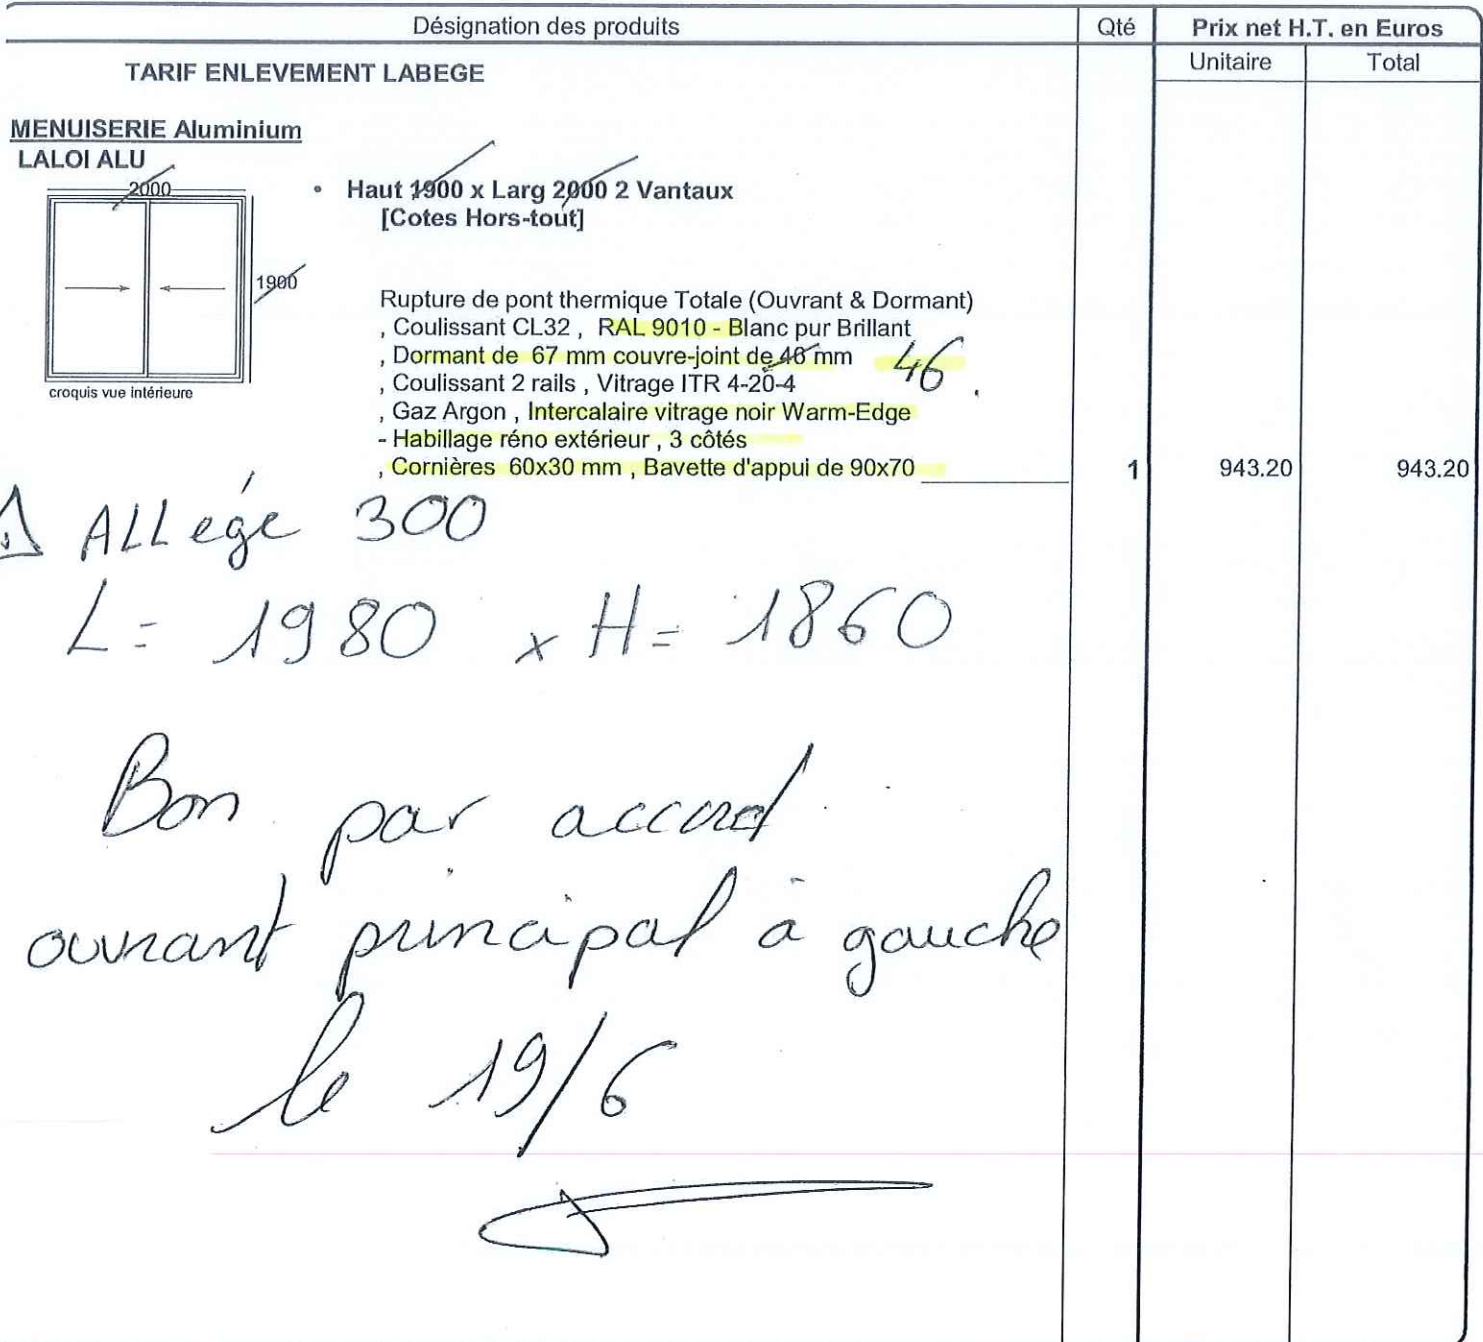 Désignation des produits Qté Prix net H.T. en Euros
Unitaire Total
TARIF ENLEVEMENT LABEGE
MENUISERIE Aluminium
LALOI ALU
2000
1900
croquis vue intérieure
• Haut 1900 x Larg 2000 2 Vantaux
[Cotes Hors-tout]
Rupture de pont thermique Totale (Ouvrant & Dormant)
, Coulissant CL32 , RAL 9010 - Blanc pur Brillant
, Dormant de 67 mm couvre-joint de 46 mm 46 .
, Coulissant 2 rails , Vitrage ITR 4-20-4
, Gaz Argon , Intercalaire vitrage noir Warm-Edge
- Habillage réno extérieur , 3 côtés
, Cornières 60x30 mm , Bavette d'appui de 90x70 1 943.20 943.20
⚠ ALLége 300
L= 1980 x H= 1860
Bon par accord
ouvrant principal à gauche
le 19/6